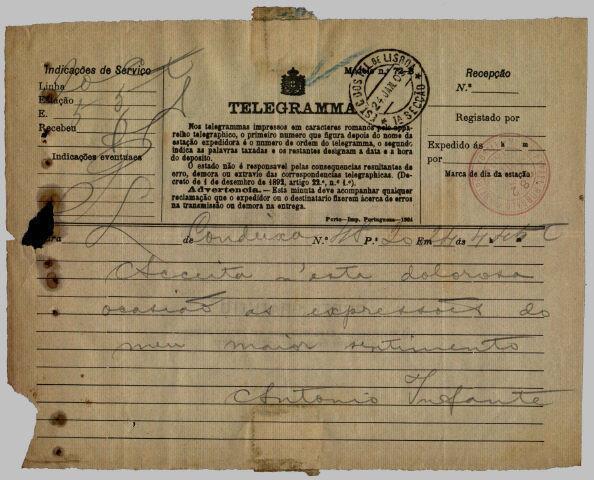 Indicações de Serviço
Linha
Estação
E.
Recebeu
Indicações eventuaes
Modelo n.º
TELEGRAMMA
Nos telegrammas impressos em caracteres romanos pelo appa-
relho telegraphico, o primeiro numero que figura depois do nome da
estação expedidora é o numero de ordem do telegramma, o segundo
indica as palavras taxadas e os restantes designam a data e a hora
do deposito.
O estado não é responsavel pelas consequencias resultantes de
erro, demora ou extravio das correspondencias telegraphicas. (De-
creto de 1 de dezembro de 1892, artigo 22.º, n.º 1.º).
Advertencia. — Esta minuta deve acompanhar qualquer
reclamação que o expedidor ou o destinatario fizerem ácerca de erros
na transmissão ou demora na entrega.
Porto—Imp. Portugueza—1904
EST E DOS TEL DE LISBOA
24 JAN
1A SECÇÃO
Recepção
N.º
Registado por
Expedido ás h m
por
Marca de dia da estação
de Condeixa N.º P.º 20 Em 24 ás
Acceita n'esta dolorosa
ocasião as expressões do
meu maior sentimento
Antonio Infante